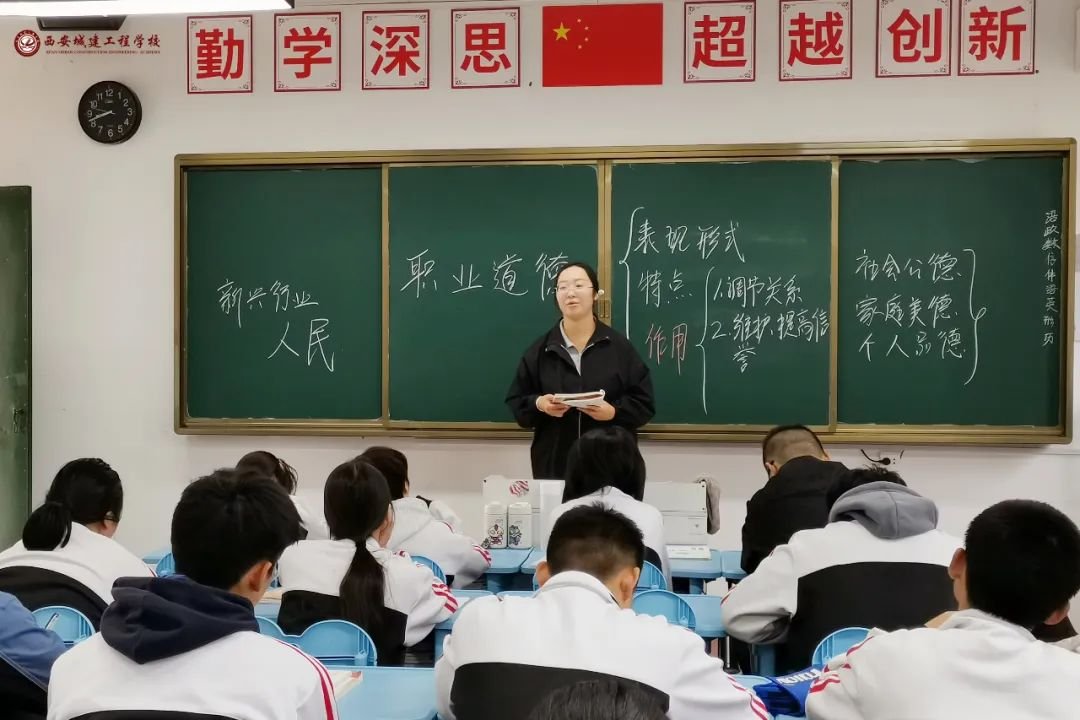 西安城建工程学校
勤学深思 超越创新
新兴行业
人民
职业道德
表现形式
特点
作用
1.调节关系
2.维护.提高信
誉
社会公德
家庭美德
个人品德